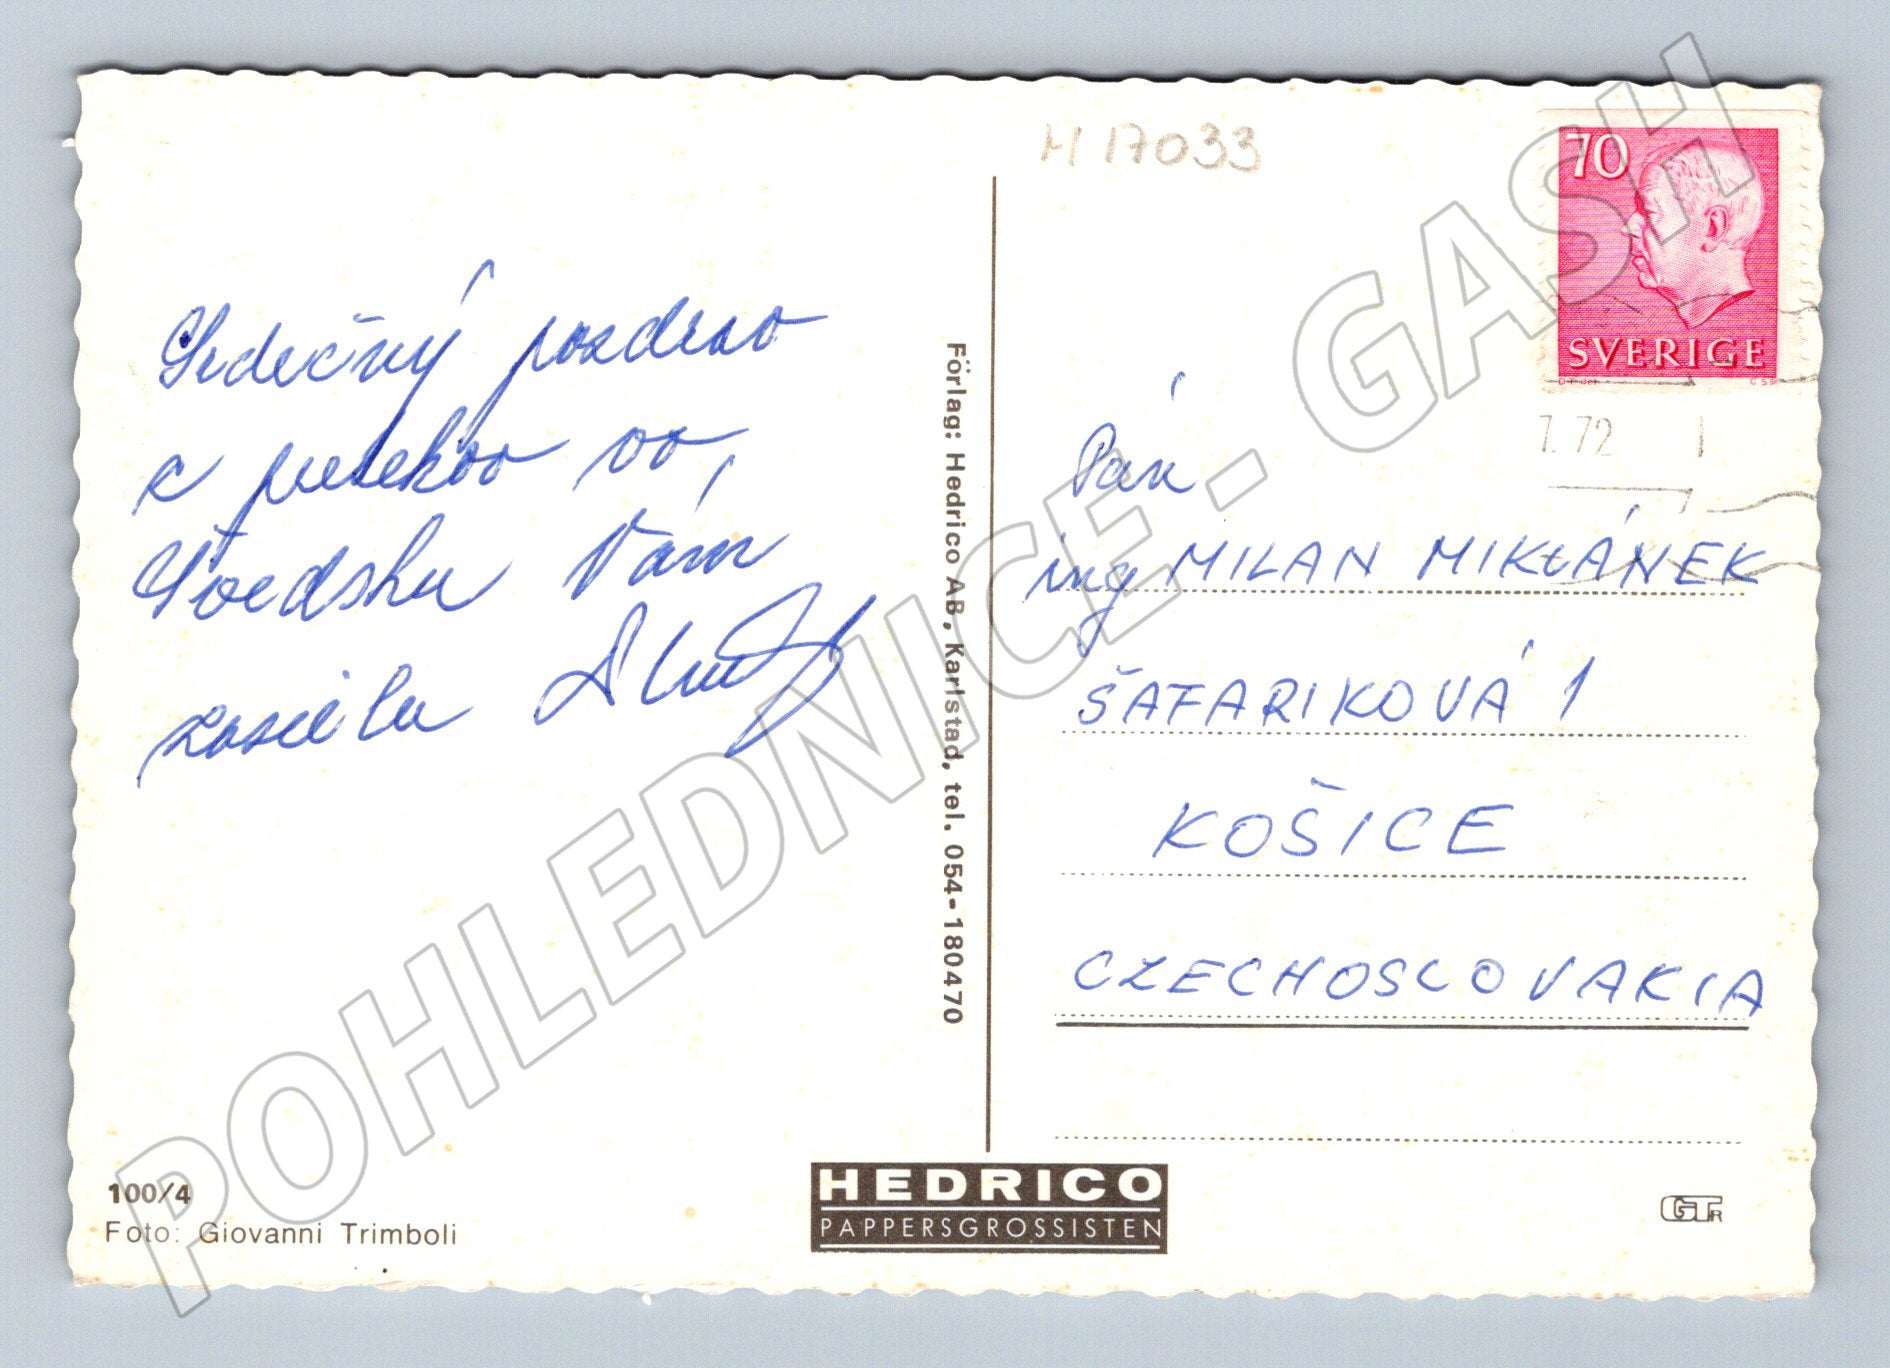 H 17033
70
SVERIGE
7.72
Srdečný pozdrav
z pobytov vo
Švédsku Vám
zasiela
Pán
ing MILAN MIKLÁNEK
ŠAFARIKOVÁ 1
KOŠICE
CZECHOSLOVAKIA
Förlag: Hedrico AB, Karlstad, tel. 054-180470
100/4
Foto: Giovanni Trimboli
HEDRICO
PAPPERSGROSSISTEN
GTR
POHLEDNICE - GASH